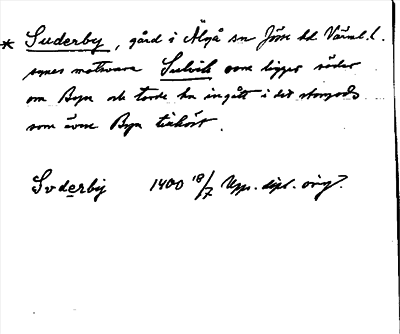 * Suderby, gård i Älgå sn Jösse hd Värml. l.
synes motsvara Sulvik som ligger söder
om Byn och torde ha ingått i det storgods
som även Byn tillhört.
Svderby 1400 18/7 Upps. dipl. orig.